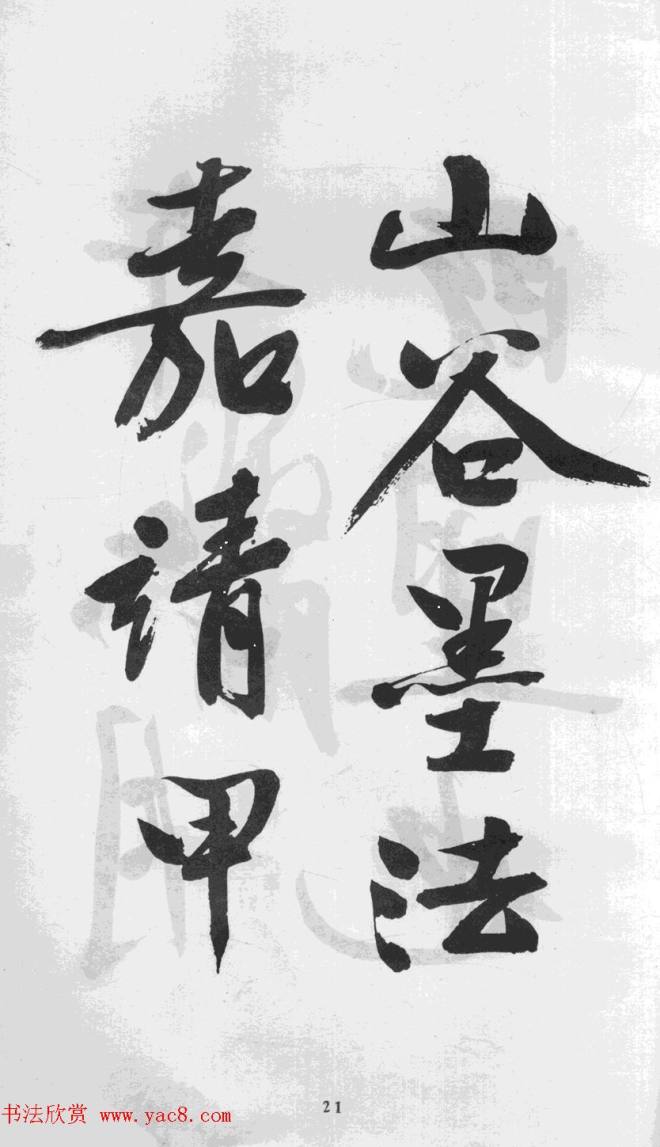 山谷墨法
嘉靖甲
21
书法欣赏 www.yac8.com